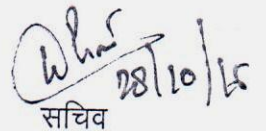 28/10/15
सचिव